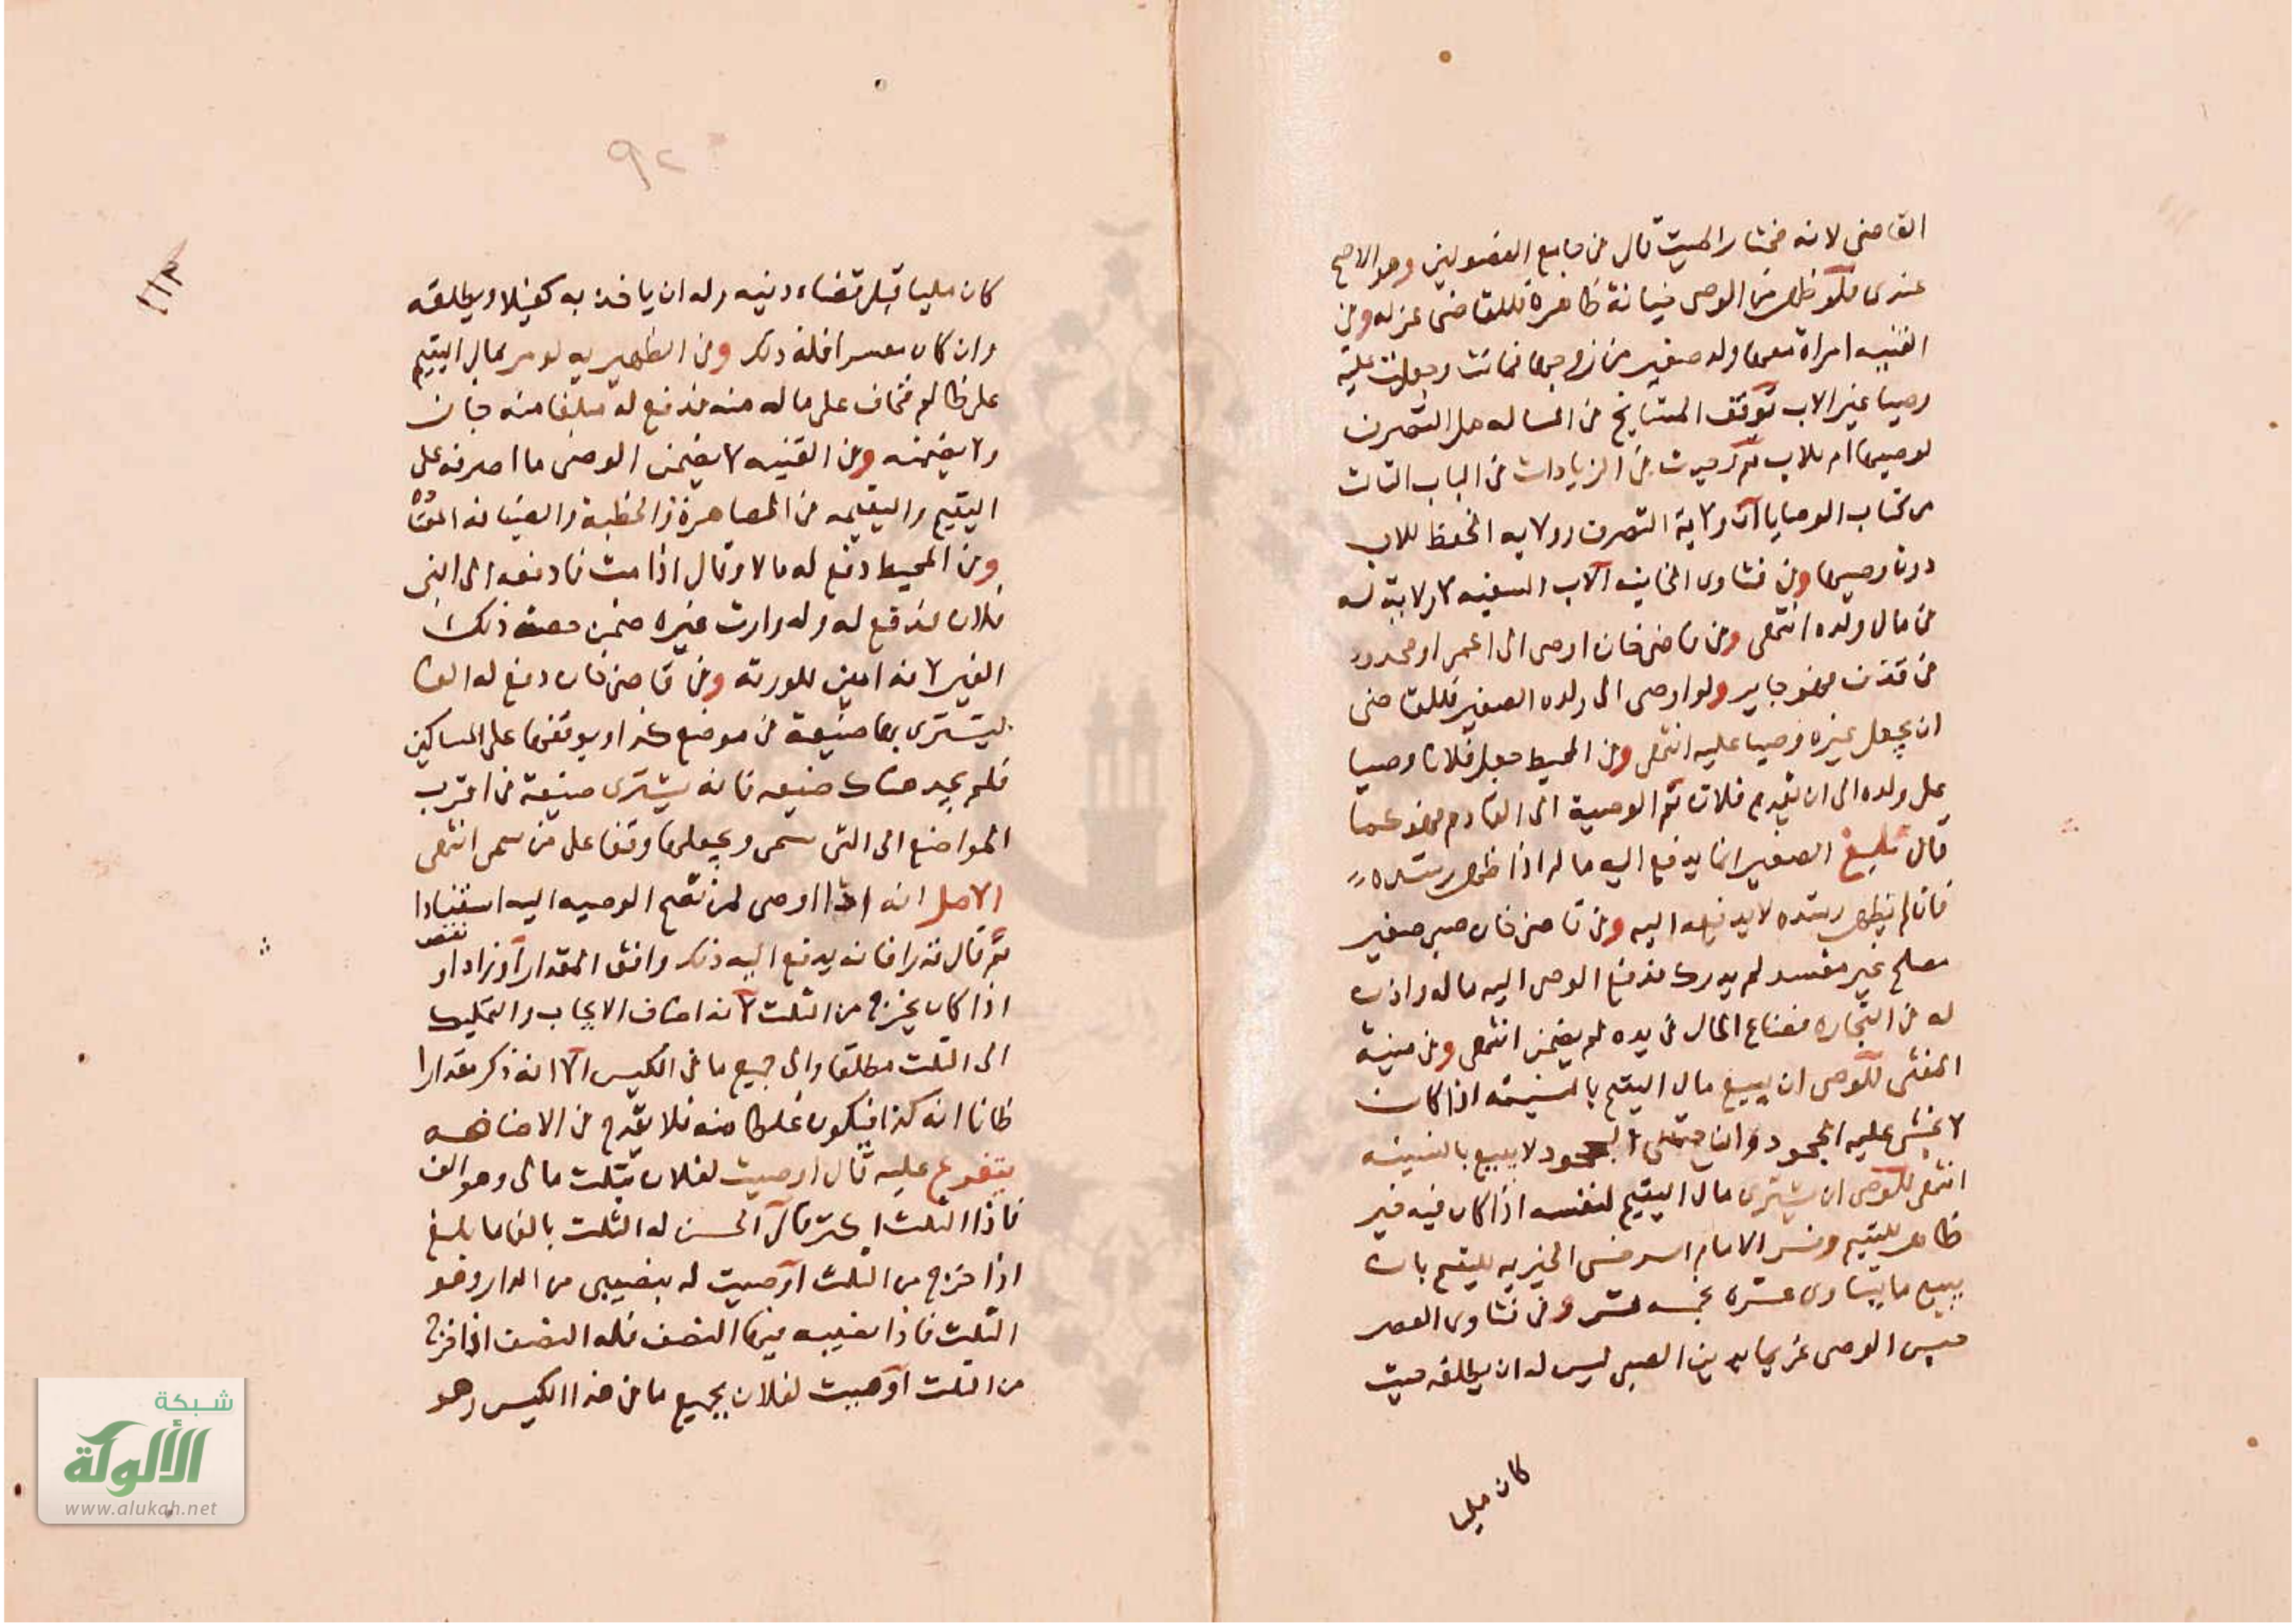 القاضى لانه مختار الميت قال فى جامع الفصولين وهو الاصح
عندى فلو ظهر من الوصى خيانة ظاهرة فللقاضى عزله وفى
القنيه امراة معها ولد صغير من زوجها فماتت وجعلت عليه
وصيا غير الاب توقف المشايخ فى المساله هل التصرف
لوصيها ام للاب ثم رايت فى الزيادات فى الباب الثالث
من كتاب الوصايا ان ولاية التصرف وولايه الحفظ للاب
دون وصيها وفى فتاوى الخانيه الاب السفيه لا ولاية له
فى مال ولده انتهى وفى قاضى خان اوصى الى اعمى او محدود
فى قذف فهو جايز ولو اوصى الى ولده الصغير فللقاضى
ان يجعل غيره وصيا عليه انتهى وفى المحيط جعل فلانا وصيا
على ولده الى ان يقدم فلان ثم الوصية الى القادم فهو كما
قال بلغ الصغير انما يدفع اليه ماله اذا ظهر رشده
فان لم يظهر رشده لا يدفعه اليه وفى قاضى خان صبى صغير
مصلح غير مفسد لم يدرك فدفع الوصى اليه ماله واذن
له فى التجاره فضاع المال فى يده لم يضمن انتهى وفى منية
المفتى للوصى ان يبيع مال اليتيم بالنسيئه اذا كان
لا يخشى عليه الجحود وان خشى الجحود لا يبيع بالنسيئه
انتهى للوصى ان يشترى مال اليتيم لنفسه اذا كان فيه خير
ظاهر لليتيم وفسر الامام السرخسى الخيريه لليتيم بان
يبيع ما يساوى عشره بخمسه عشر وفى فتاوى العصر
حبس الوصى غريما بدين الصبى ليس له ان يطلقه حيث
كان مليا
٩٢
١١٢
كان مليا قبل قضاء دينه وله ان ياخذ به كفيلا ويطلقه
وان كان معسرا فله ذلك وفى الظهيريه لو مر بمال اليتيم
على ظالم فخاف على ماله منه فدفع له مبلغا منه جاز
ولا يضمنه وفى القنيه لا يضمن الوصى ما اصرفه على
اليتيم واليتيمه فى المصاهرة والخطبة والضيافه المعتاده
وفى المحيط دفع له مالا وقال اذا مت فادفعه الى ابنى
فلان فدفع له وله وارث غيره ضمن حصة ذلك
الغير لانه امين للورثة وفى قاضى خان دفع له الفا
ليشترى بها ضيعة فى موضع كذا ويوقفها على المساكين
فلم يجد هناك ضيعه فانه يشترى ضيعة فى اقرب
المواضع الى التى سمى ويجعلها وقفا على من سمى انتهى
الاصل انه اذا اوصى لمن تصح الوصيه اليه استنادا
ثم قال قدرا فانه يدفع اليه ذلك وافق المقدار او زاد او نقص
اذا كان يخرج من الثلث لانه اضاف الايجاب والتمليك
الى الثلث مطلقا والى جميع ما فى الكيس الا انه ذكر مقدارا
ظانا انه كذا فيكون غلطا منه فلا يقدح فى الاضافه
يتفرع عليه قال اوصيت لفلان بثلث مالى وهو الف
فاذا الثلث اكثر قال الحسن له الثلث بالغا ما بلغ
اذا خرج من الثلث اوصيت له بنصيبى من الدار وهو
الثلث فاذا نصيبه فيها النصف فله النصف اذا خرج
من الثلث اوصيت لفلان بجميع ما فى هذا الكيس وهو
شبكة
الألوكة
www.alukah.net